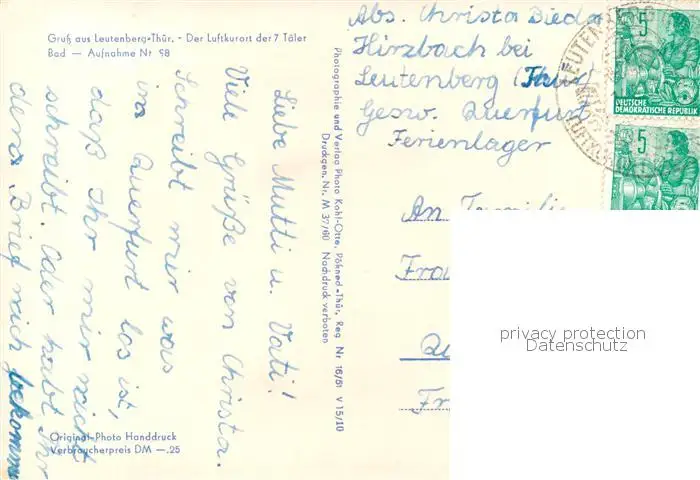 Gruß aus Leutenberg-Thür. - Der Luftkurort der 7 Täler
Bad — Aufnahme Nr 98
Liebe Mutti u. Vati!
Viele Grüße von Christa.
Schreibt mir was
in Querfurt los ist,
daß Ihr mir nicht
schreibt. Oder habt Ihr
den Brief nich bekomm
Original-Photo Handdruck
Verbraucherpreis DM —.25
Photographie und Verlag Photo Kohl-Otte, Pößneck-Thür, Reg Nr 16/51 V 15/10
Druckgen. Nr. M 37/60 Nachdruck verboten
Abs. Christa
Hirzbach bei
Leutenberg (Thür)
Gesw. Querfurt
Ferienlager
An Familie
Fra
Qu
Fr
5
DEUTSCHE
DEMOKRATISCHE REPUBLIK
5
LEUTENBERG
privacy protection
Datenschutz